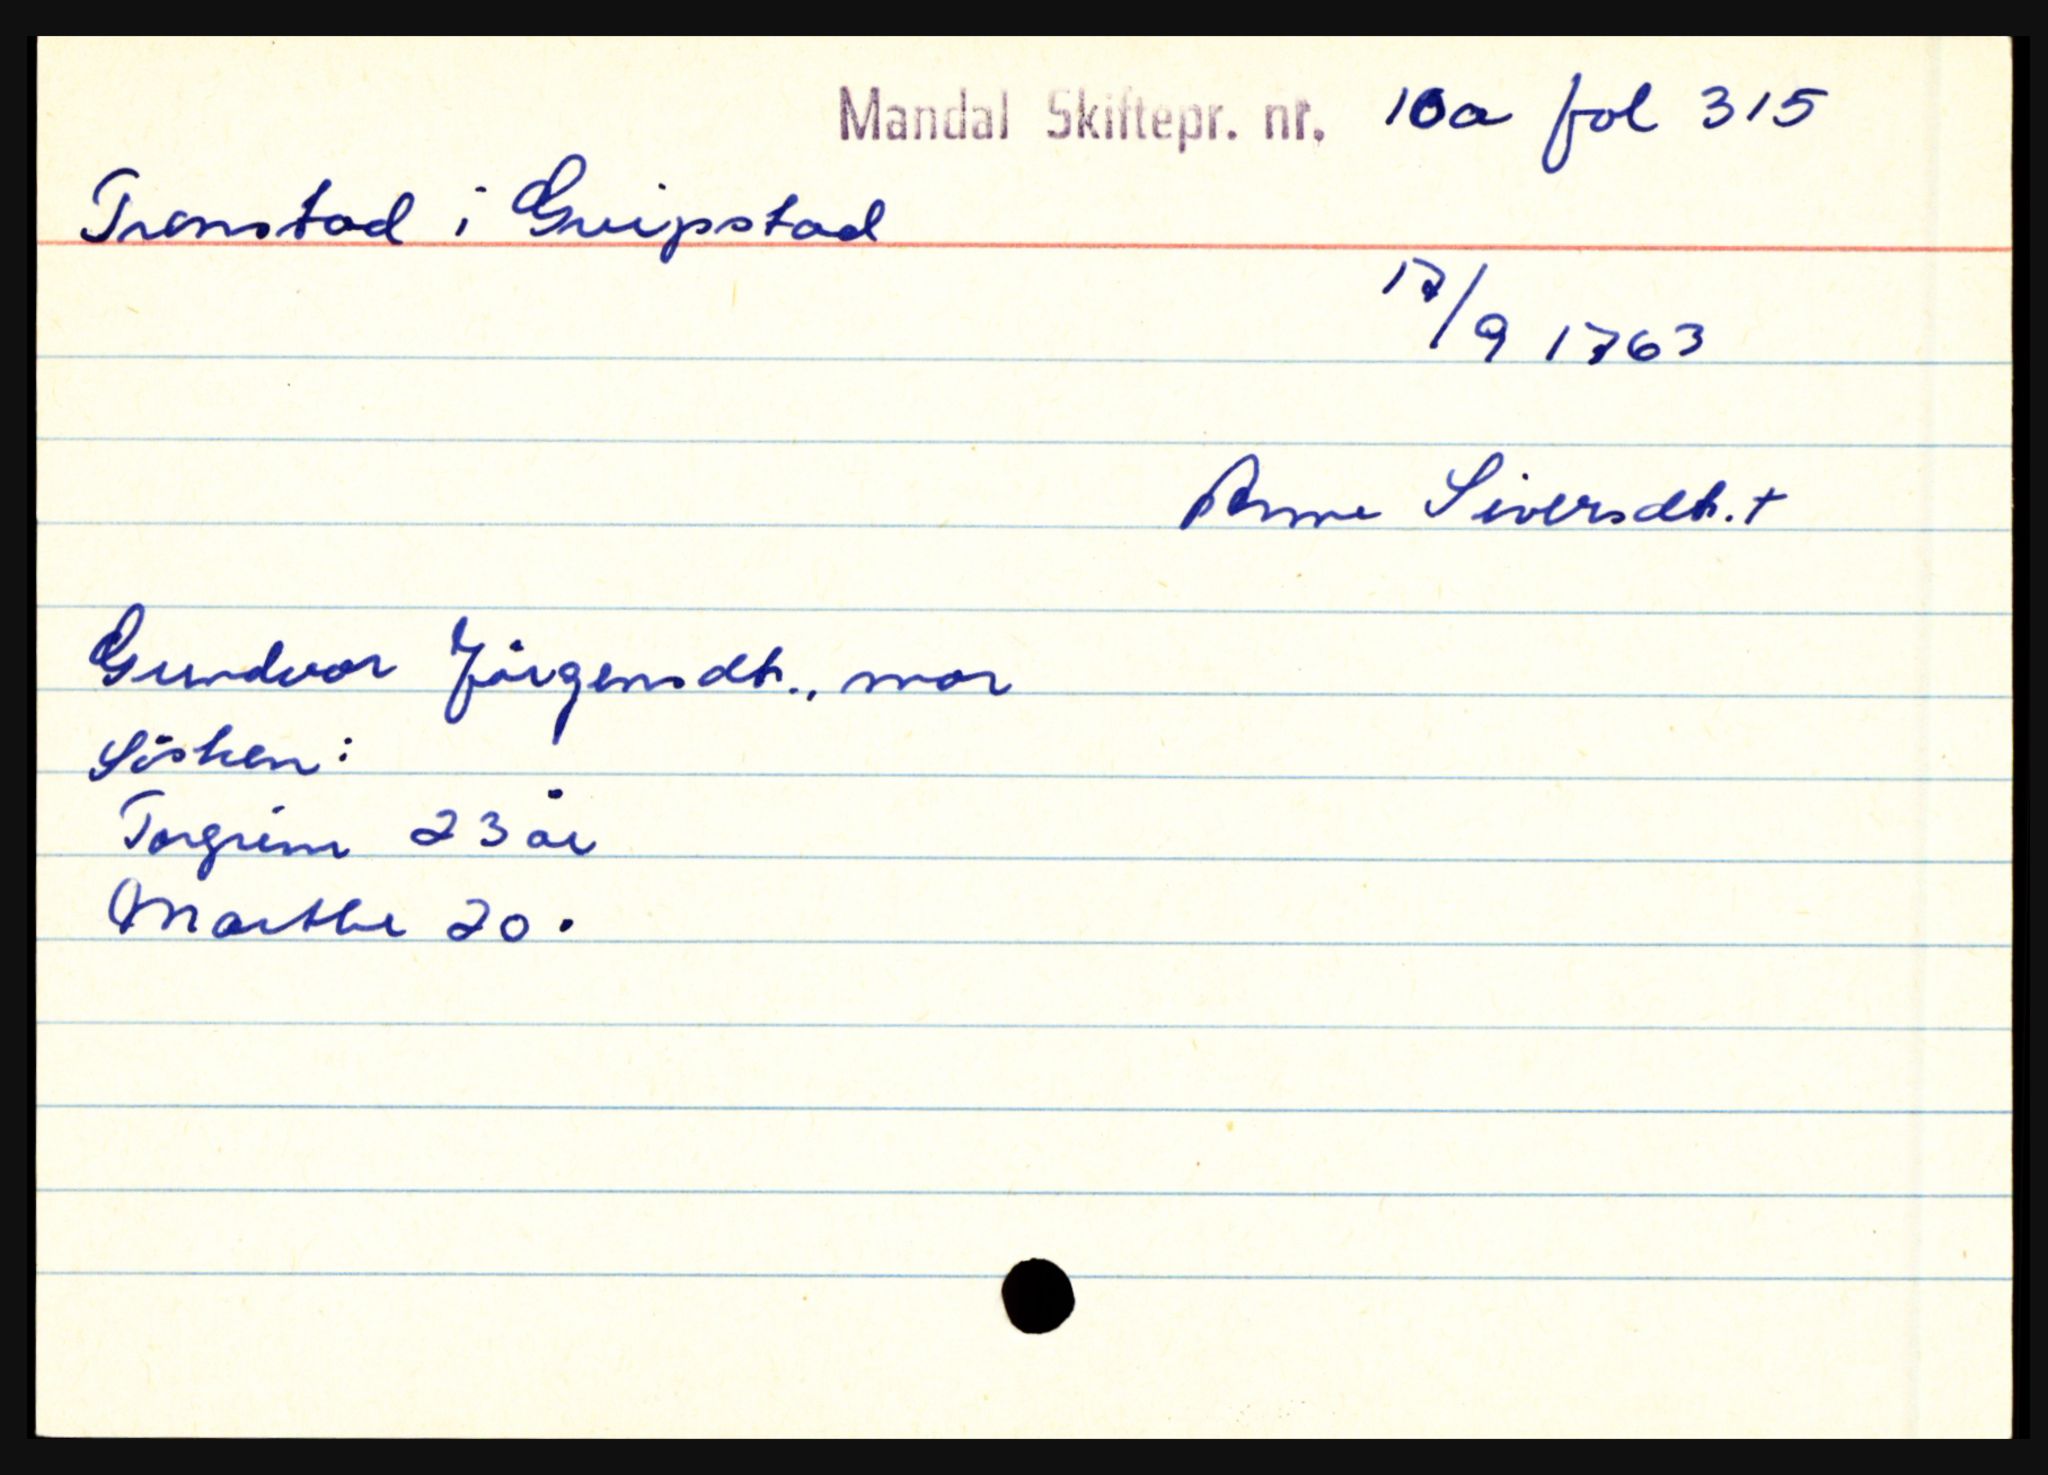 Mandal Skiftepr. nr. 10a fol 315
Trenstad i Greipstad
17/9 1763
Anne Siversdtr. +
Gundvor Jörgensdtr., mor
Sösken:
Torgrim 23 år
Marthe 20 .